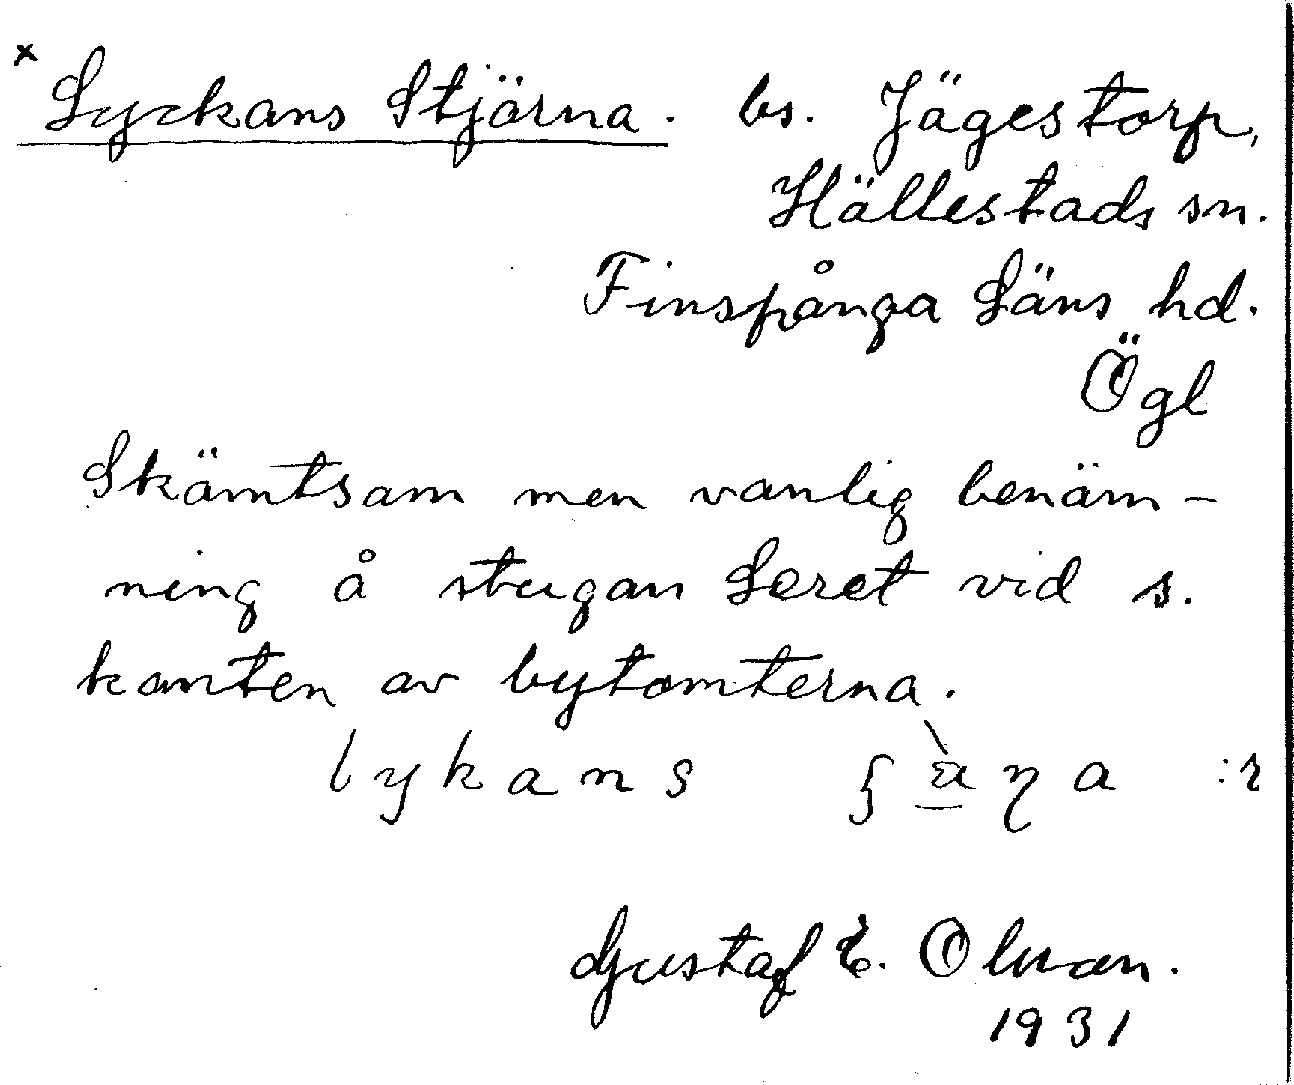 x Lyckans Stjärna. bs. Jägestorp,
Hällestads sn.
Finspånga Läns hd.
Ögl
Skämtsam men vanlig benäm-
ning å stugan Leret vid s.
kanten av bytomterna.
lykans ʃàɳa :r
Gustaf E. Olman.
1931